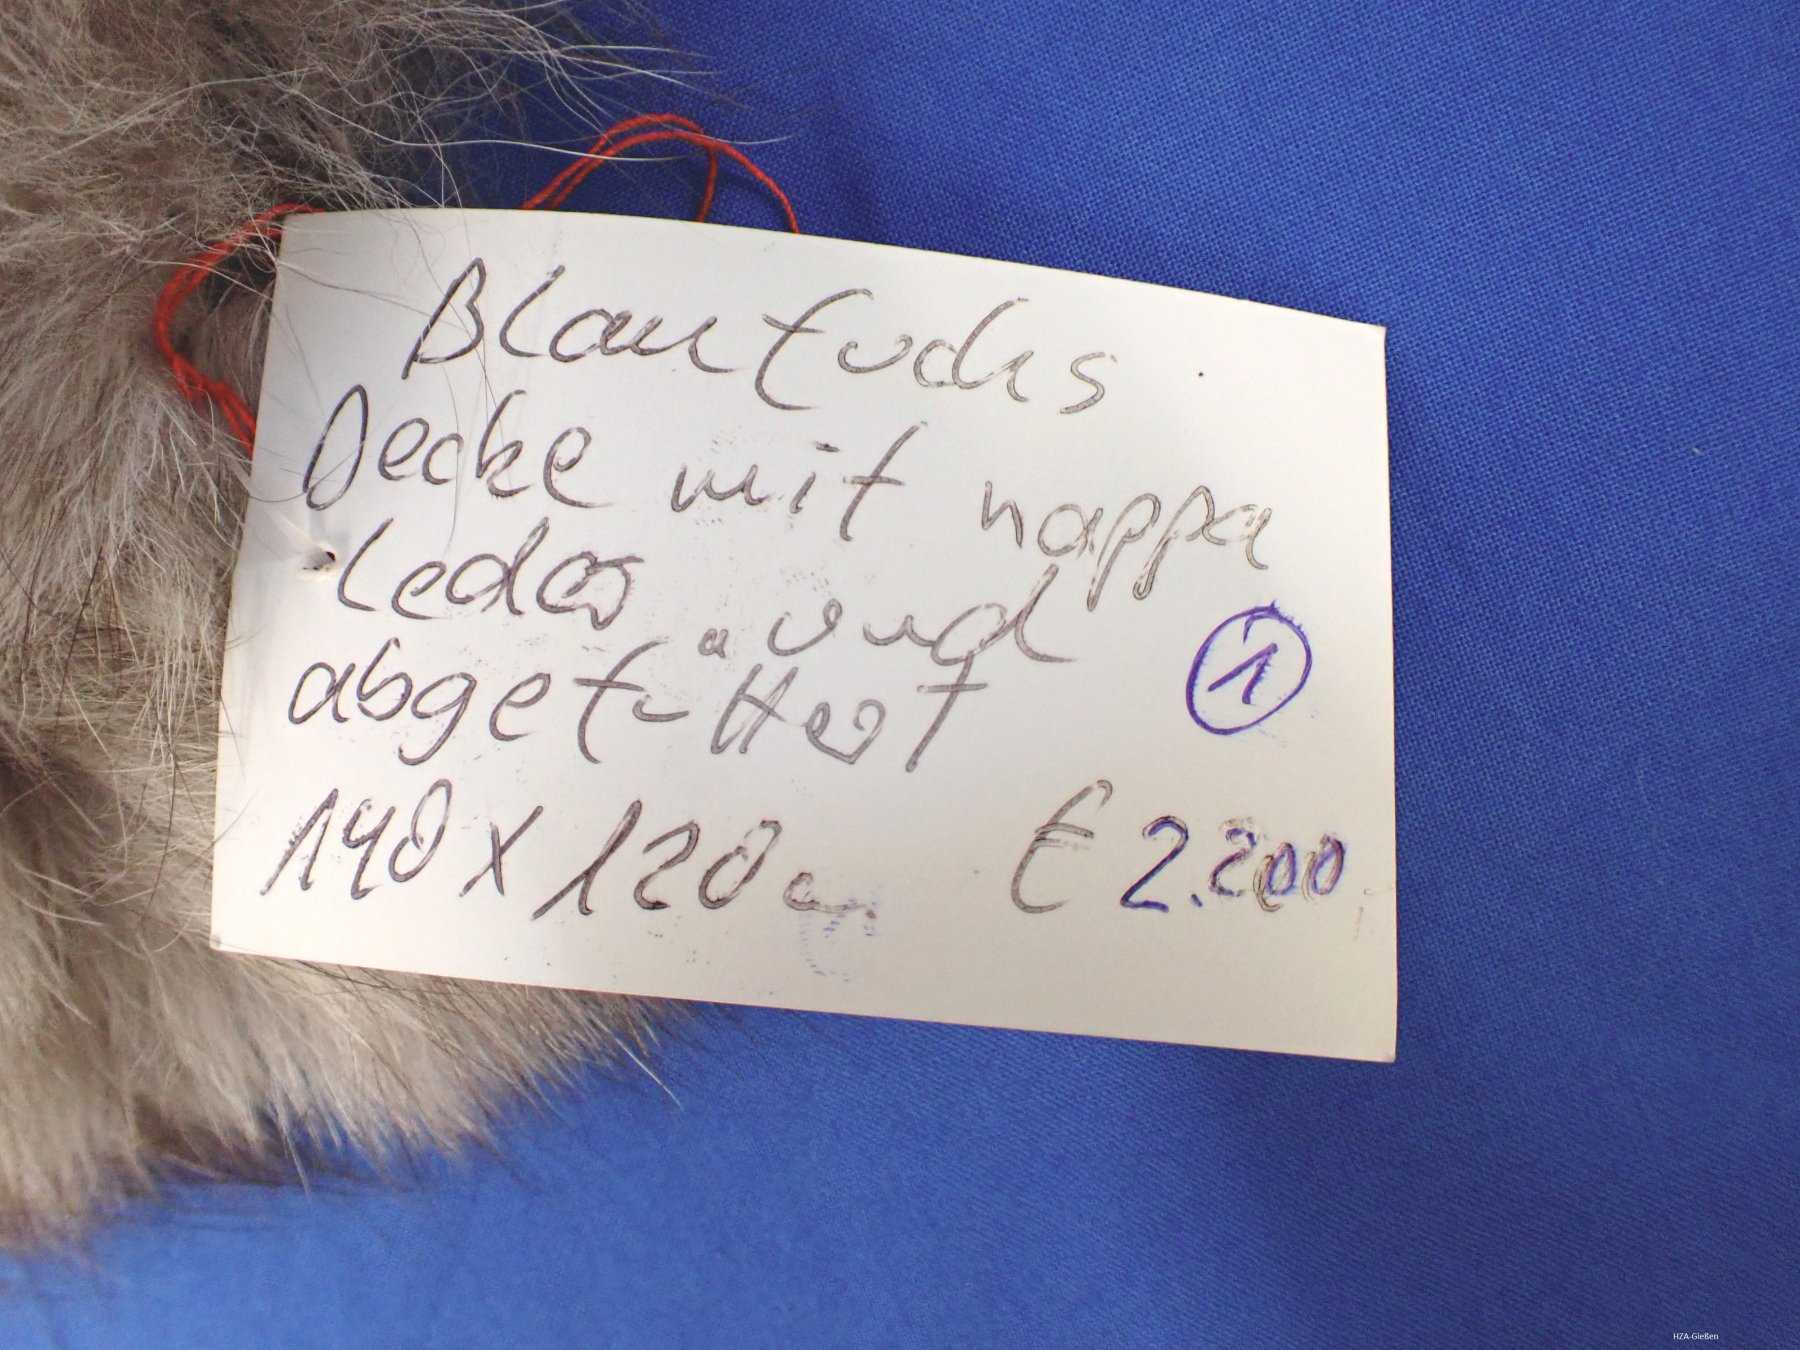 Blaufuchs
Decke mit nappa
Leder und
abgefüttert
1
140 x 120 cm € 2.200
HZA-Gießen